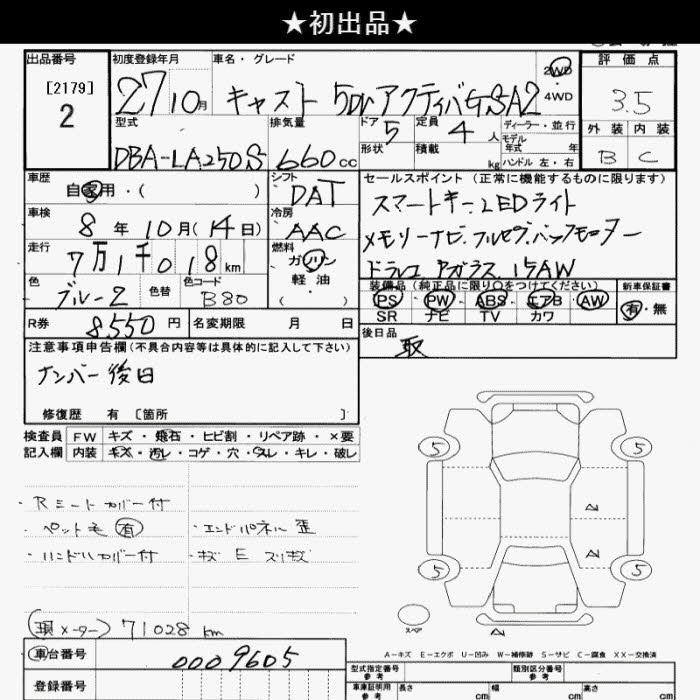 ★初出品★
出品番号
[2179]
2
初度登録年月
27 10月
車名・グレード
キャスト 5Dr アクティバGSA2
2WD
4WD
評価点
3.5
外装 内装
B C
型式
DBA-LA250S
排気量
660cc
ドア 5
形状
定員 4人
積載 kg
ディーラー・並行
モデル年式 年
ハンドル 左・右
車歴
自家用・( )
シフト
DAT
車検
8年10月(14日)
冷房
AAC
走行
7万1千018km
燃料
ガソリン
軽油
( )
色
ブルー2
色替
色コード
B80
セールスポイント(正常に機能するものに限ります)
スマートキー.LEDライト
メモリーナビ.フルセグ.バックモーター
ドラレコ.アガラス.15AW
装備品(純正品に限り○をつけてください)
PS PW ABS エアB AW
SR ナビ TV カワ
新車保証書
有・無
R券 8550円
名変期限 月 日
後日品
取
注意事項申告欄(不具合内容等は具体的に記入して下さい)
ナンバー後日
修復歴 有 [箇所 ]
検査員
記入欄
FW キズ・飛石・ヒビ割・リペア跡・×要
内装 キズ・汚レ・コゲ・穴・スレ・キレ・破レ
・Rシートカバー付
・ペット毛 有
・エンドパネル歪
・ハンドルカバー付
・キズE スリキズ
(現メーター) 71028 km
5 5
5 5
スペア
A-キズ E-エクボ U-凹み W-補修跡 S-サビ C-腐食 XX-交換済
車台番号
0009605
登録番号
型式指定番号
参考
類別区分番号
参考
車庫証明用
参考
長さ cm
幅 cm
高さ cm